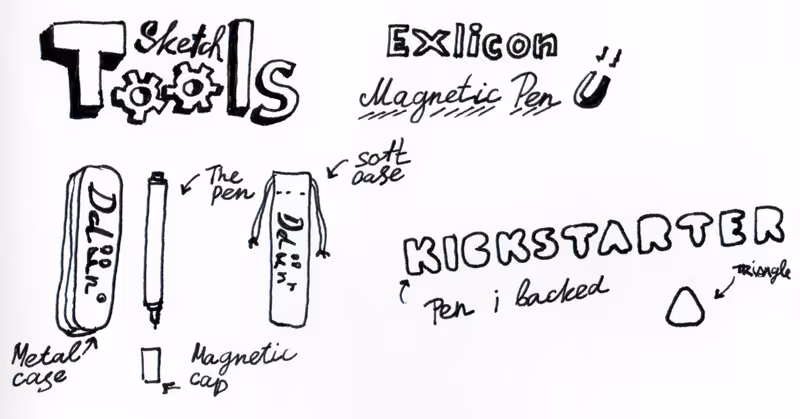 Sketch
Tools
Exlicon
Magnetic Pen
The
pen
soft
case
KICKSTARTER
Pen i backed
triangle
Metal
case
Magnetic
cap